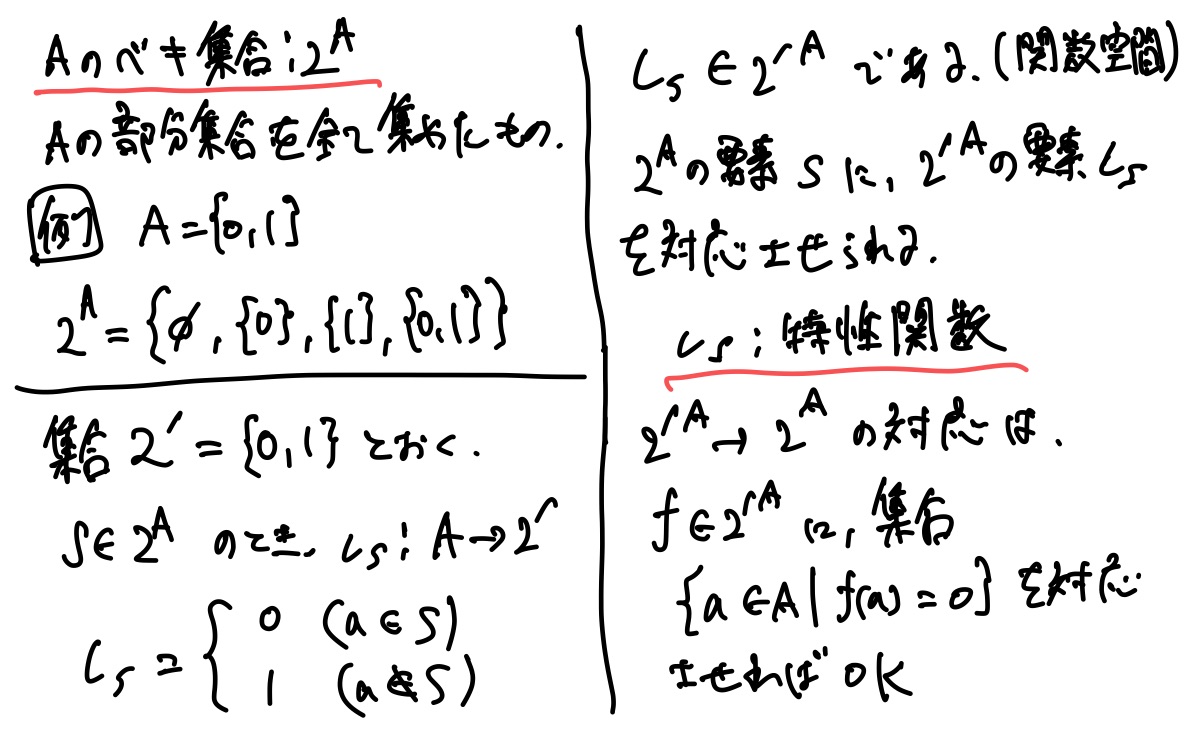 Aのベキ集合:2^A
Aの部分集合を全て集めたもの.
例 A={0,1}
2^A={∅,{0},{1},{0,1}}
集合2′={0,1}とおく.
S∈2^Aのとき, ι_S:A→2′
ι_S={ 0 (a∈S)
1 (a∉S)
ι_S∈2′^Aである.(関数空間)
2^Aの要素Sに,2′^Aの要素ι_S
を対応させられる.
ι_S:特性関数
2′^A→2^Aの対応は,
f∈2′^Aに,集合
{a∈A|f(a)=0}を対応
させればOK